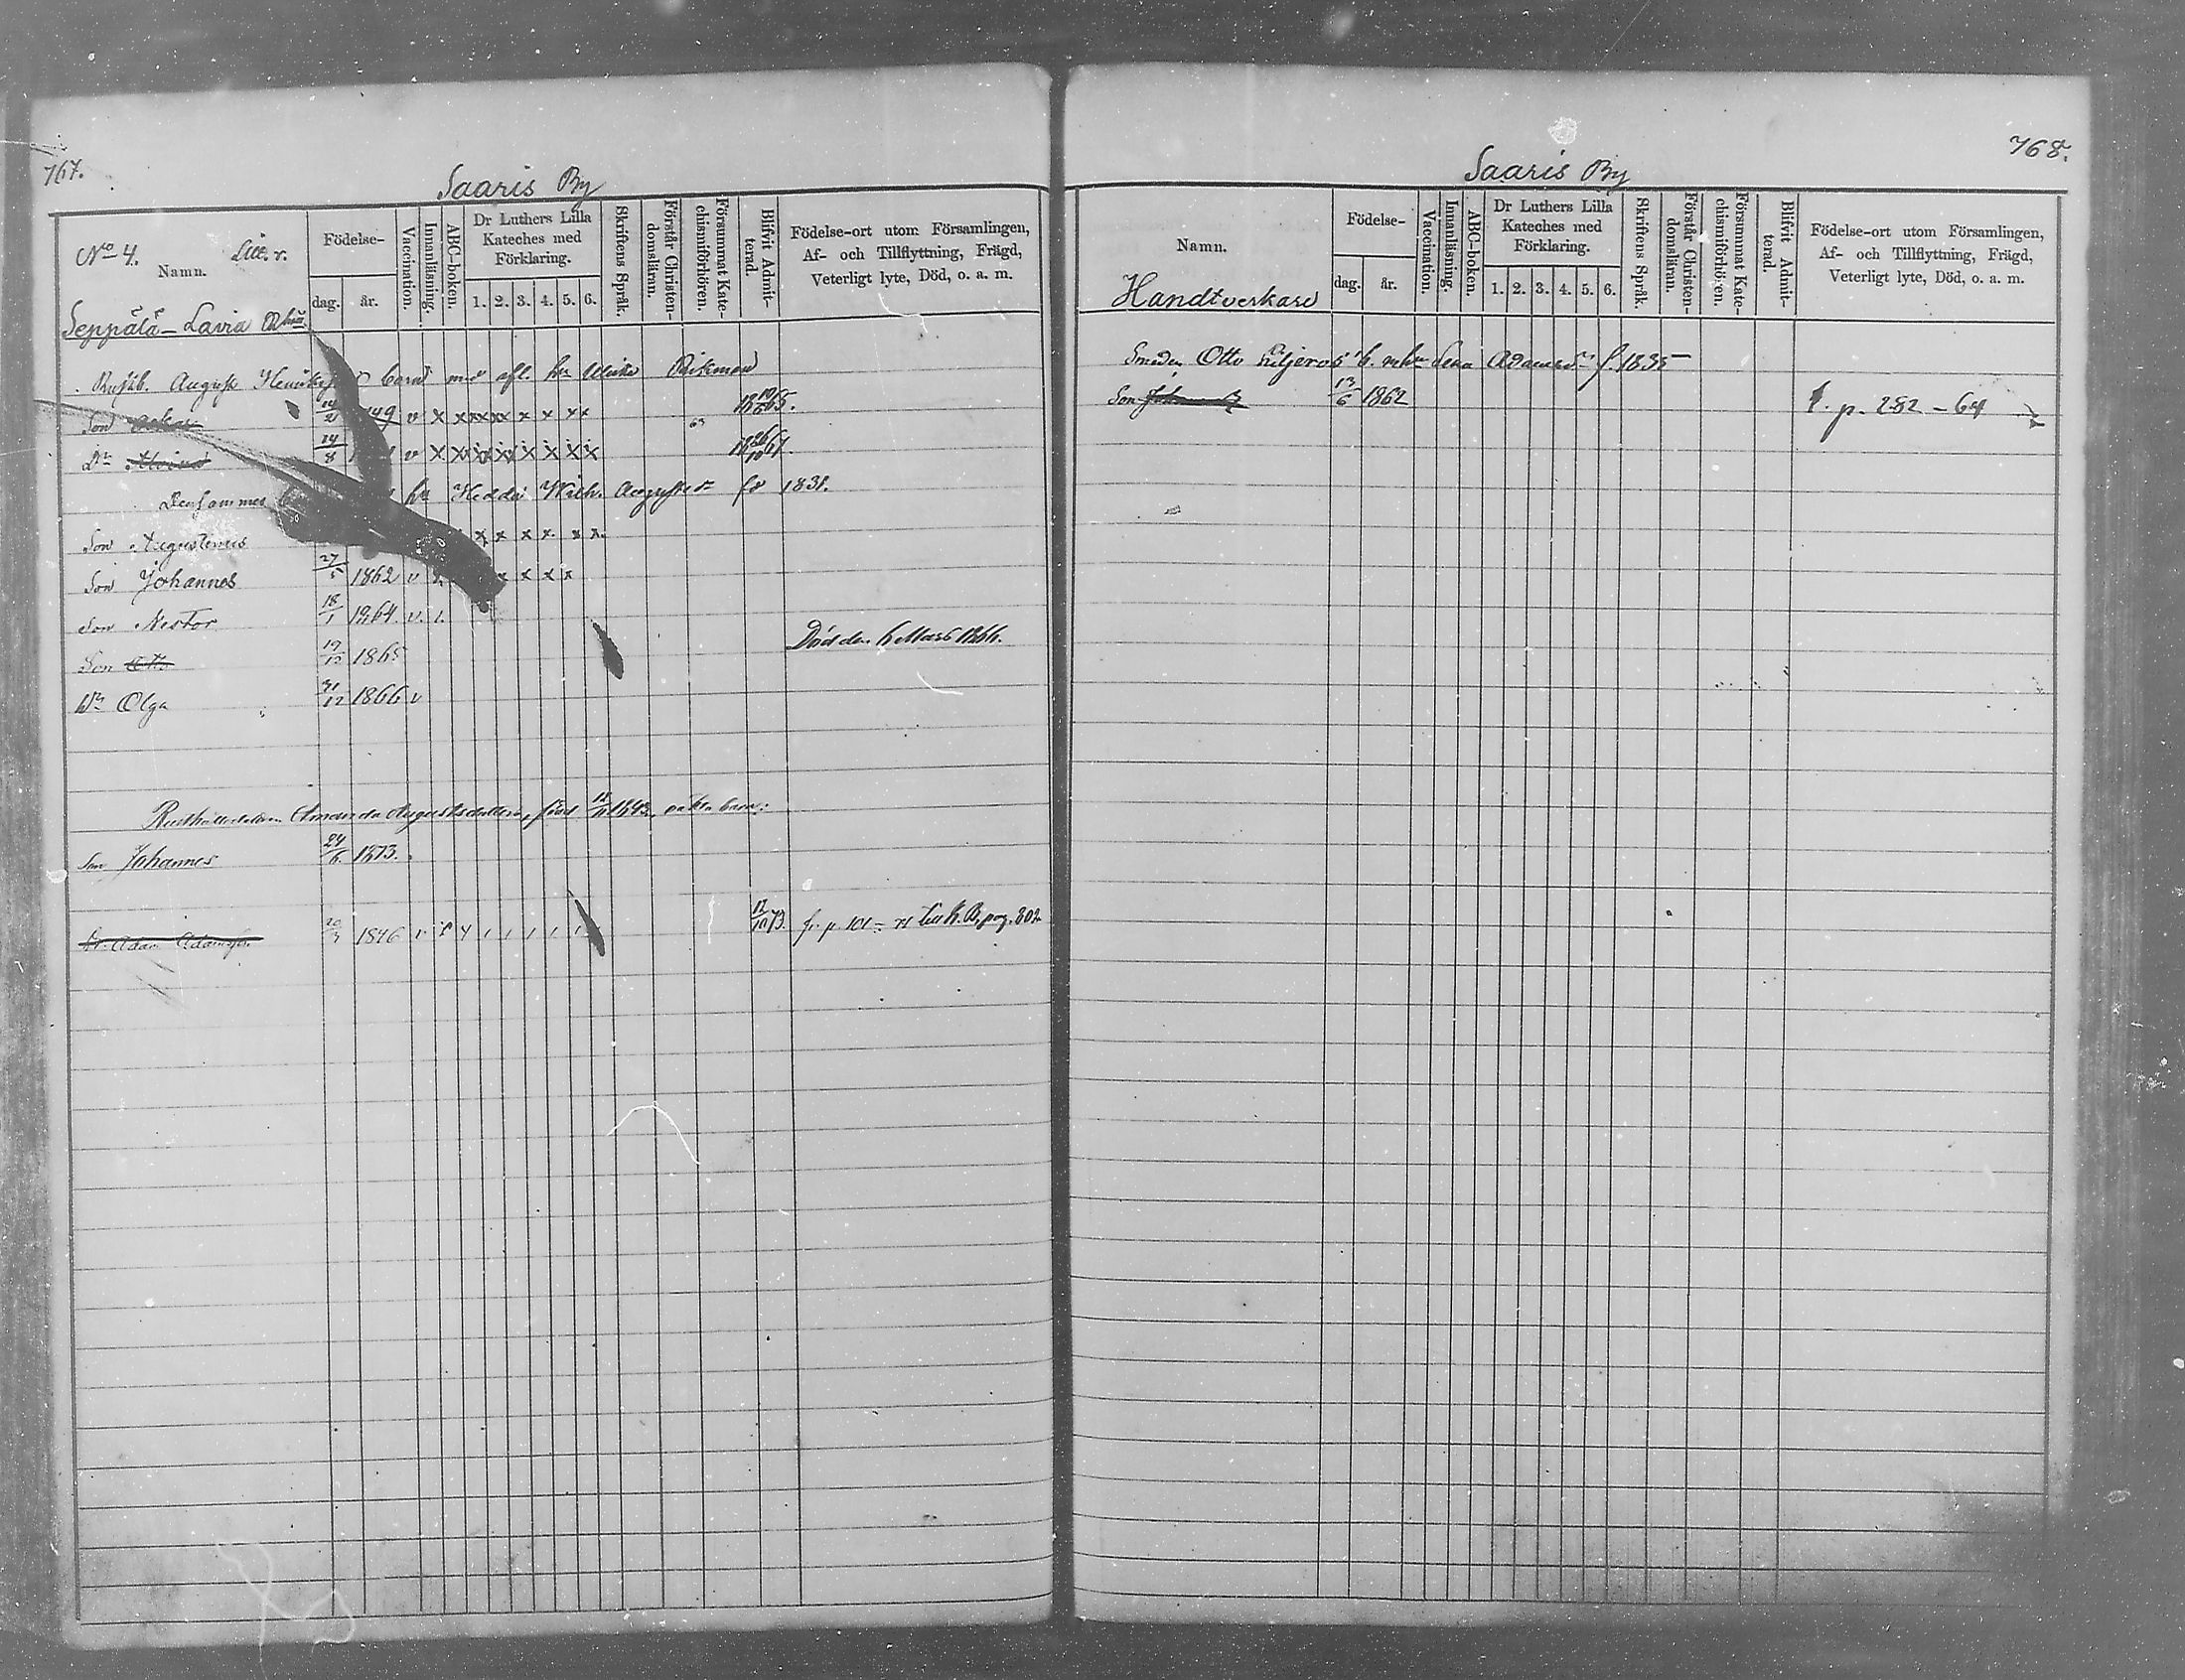 767.
Saaris By
No 4. Litt. r.
Namn.
Födelse-
dag. år.
Vaccination.
Innanläsning.
ABC-boken.
Dr Luthers Lilla
Kateches med
Förklaring.
1. 2. 3. 4. 5. 6.
Skriftens Språk.
Förstår Christen-
domsläran.
Försummat Kate-
chismiförhören.
Blifvit Admit-
terad.
Födelse-ort utom Församlingen,
Af- och Tillflyttning, Frägd,
Veterligt lyte, Död, o. a. m.
Seppälä-Lavia
August barn med afl. hu Ulrika
Son 14/21 v x x x x x x x x
Dr 14/8 v x x x x x x x x
Densammes hu Hedda Wilh. 1831.
Son Augustinus x x x x x x
Son Johannes 27/5 1862 v x x x x
Son Nestor 18/1 1864. v.
Son Otto 19/12 1865 Död den 6 Mars 1866.
Dr Olga 31/12 1866 v
Amanda Augustsdotters, född oäkta barn:
Son Johannes 24/6 1873.
Dr. Adam Adamsson 20/3 1846 12/10 73. fr. p. 101 K. B. pag. 802
768.
Saaris By
Namn.
Handtverkare
Födelse-
dag. år.
Vaccination.
Innanläsning.
ABC-boken.
Dr Luthers Lilla
Kateches med
Förklaring.
1. 2. 3. 4. 5. 6.
Skriftens Språk.
Förstår Christen-
domsläran.
Försummat Kate-
chismiförhören.
Blifvit Admit-
terad.
Födelse-ort utom Församlingen,
Af- och Tillflyttning, Frägd,
Veterligt lyte, Död, o. a. m.
Smeden Otto b. m. hu Lena Adamsdr f. 1835
Son 13/6 1862 p. 282 - 64